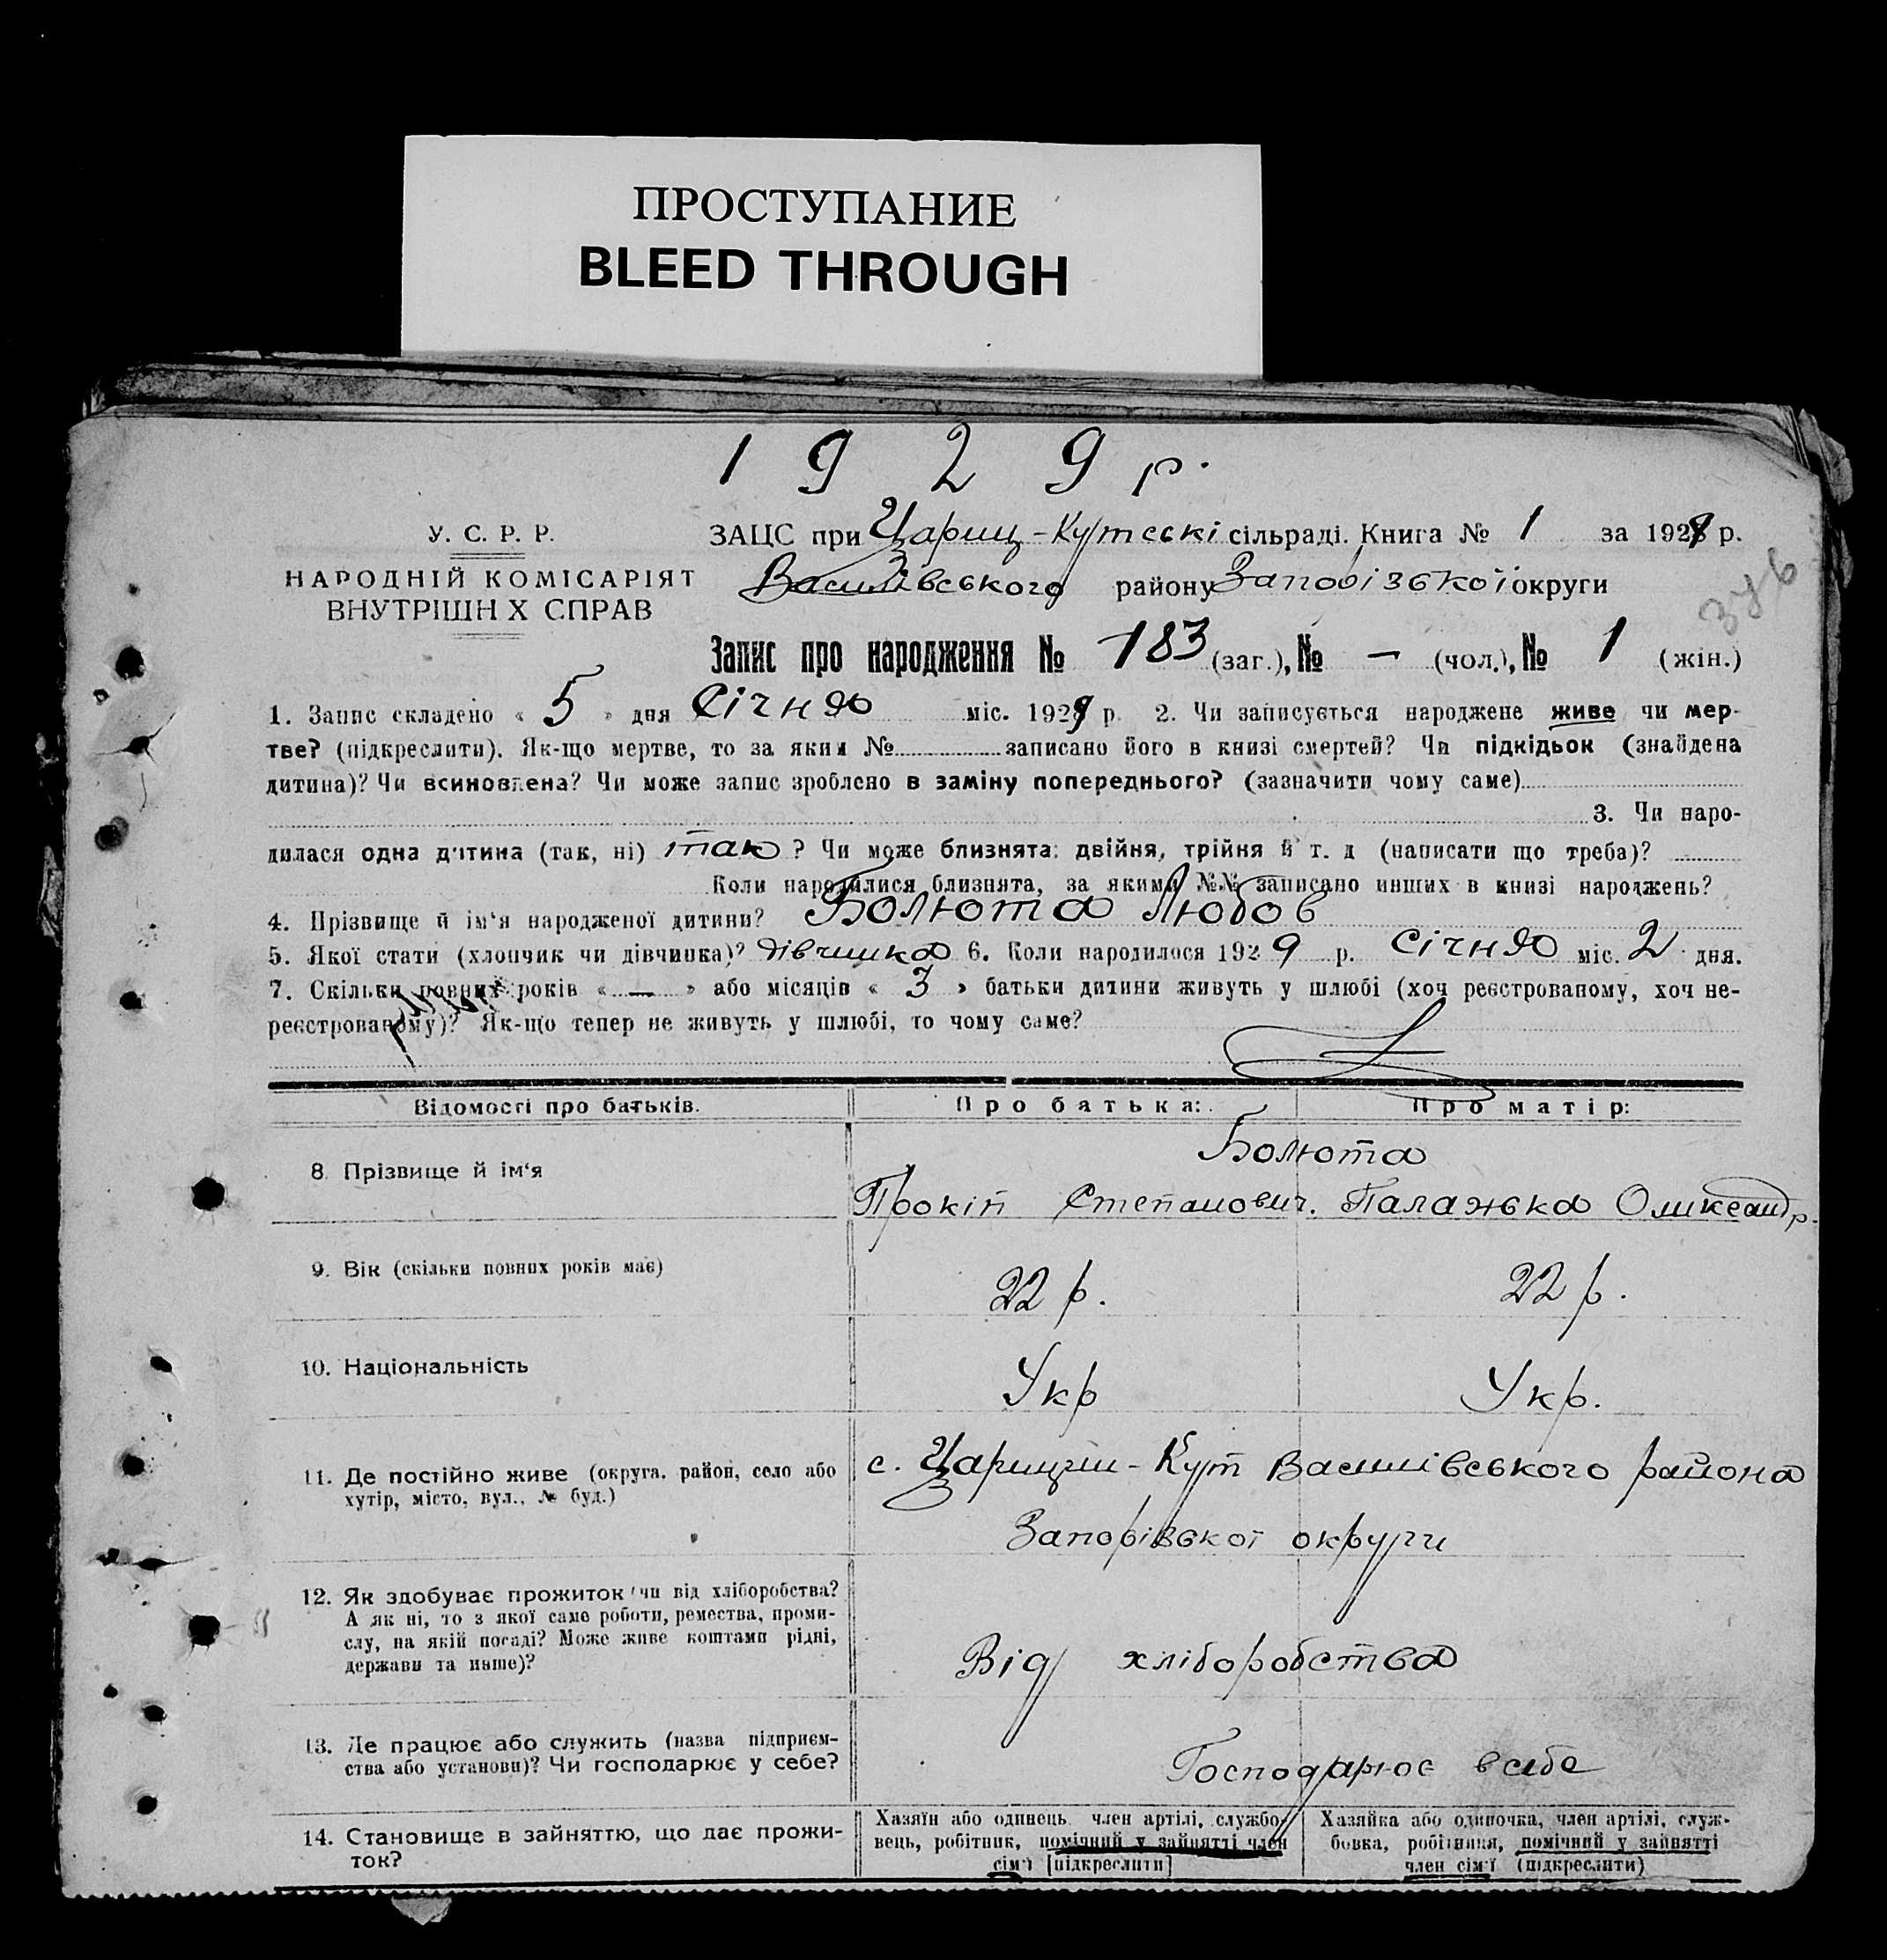 ПРОСТУПАНИЕ
BLEED THROUGH
1929 р.
У. С. Р. Р.
НАРОДНІЙ КОМІСАРІЯТ
ВНУТРІШН Х СПРАВ
ЗАЦС при Цариц-Кутські сільраді. Книга № 1 за 1929 р.
Василівського району Запорізької округи
346
Запис про народження № 183 (заг.), № — (чол.), № 1 (жін.)
1. Запис складено « 5 » дня Січня міс. 1929 р. 2. Чи записується народжене живе чи мер-
тве? (підкреслити). Як-що мертве, то за яким № записано його в книзі смертей? Чи підкідьок (знайдена
дитина)? Чи всиновлена? Чи може запис зроблено в заміну попереднього? (зазначити чому саме)
3. Чи наро-
дилася одна дитина (так, ні) так ? Чи може близнята: двійня, трійня й т. д (написати що треба)?
Коли народилися близнята, за якими №№ записано инших в книзі народжень?
4. Прізвище й ім'я народженої дитини? Болюта Любов
5. Якої стати (хлопчик чи дівчинка)? дівчинка 6. Коли народилося 1929 р. Січня міс. 2 дня.
7. Скільки повних років « — » або місяців « 3 » батьки дитини живуть у шлюбі (хоч реєстрованому, хоч не-
реєстрованому)? Як-що тепер не живуть у шлюбі, то чому саме?
Відомості про батьків.
Про батька:
Про матір:
8. Прізвище й ім'я
Болюта
Прокіп Степанович. Палажка Олександр.
9. Вік (скільки повних років має)
22 р.
22 р.
10. Національність
Укр
Укр.
11. Де постійно живе (округа, район, село або
хутір, місто, вул., № буд.)
с. Царицин-Кут Василівського района
Запорізької округи
12. Як здобуває прожиток (чи від хліборобства?
А як ні, то з якої саме роботи, ремества, проми-
слу, на якій посаді? Може живе коштами рідні,
держави та инше)?
Від хліборобства
13. Де працює або служить (назва підприєм-
ства або установи)? Чи господарює у себе?
Господарює в себе
14. Становище в зайняттю, що дає прожи-
ток?
Хазяїн або одинець, член артілі, службо-
вець, робітник, помічний у зайнятті член
сім'ї [підкреслити]
Хазяйка або одиночка, член артілі, служ-
бовка, робітниця, помічний у зайнятті
член сім'ї (підкреслити)